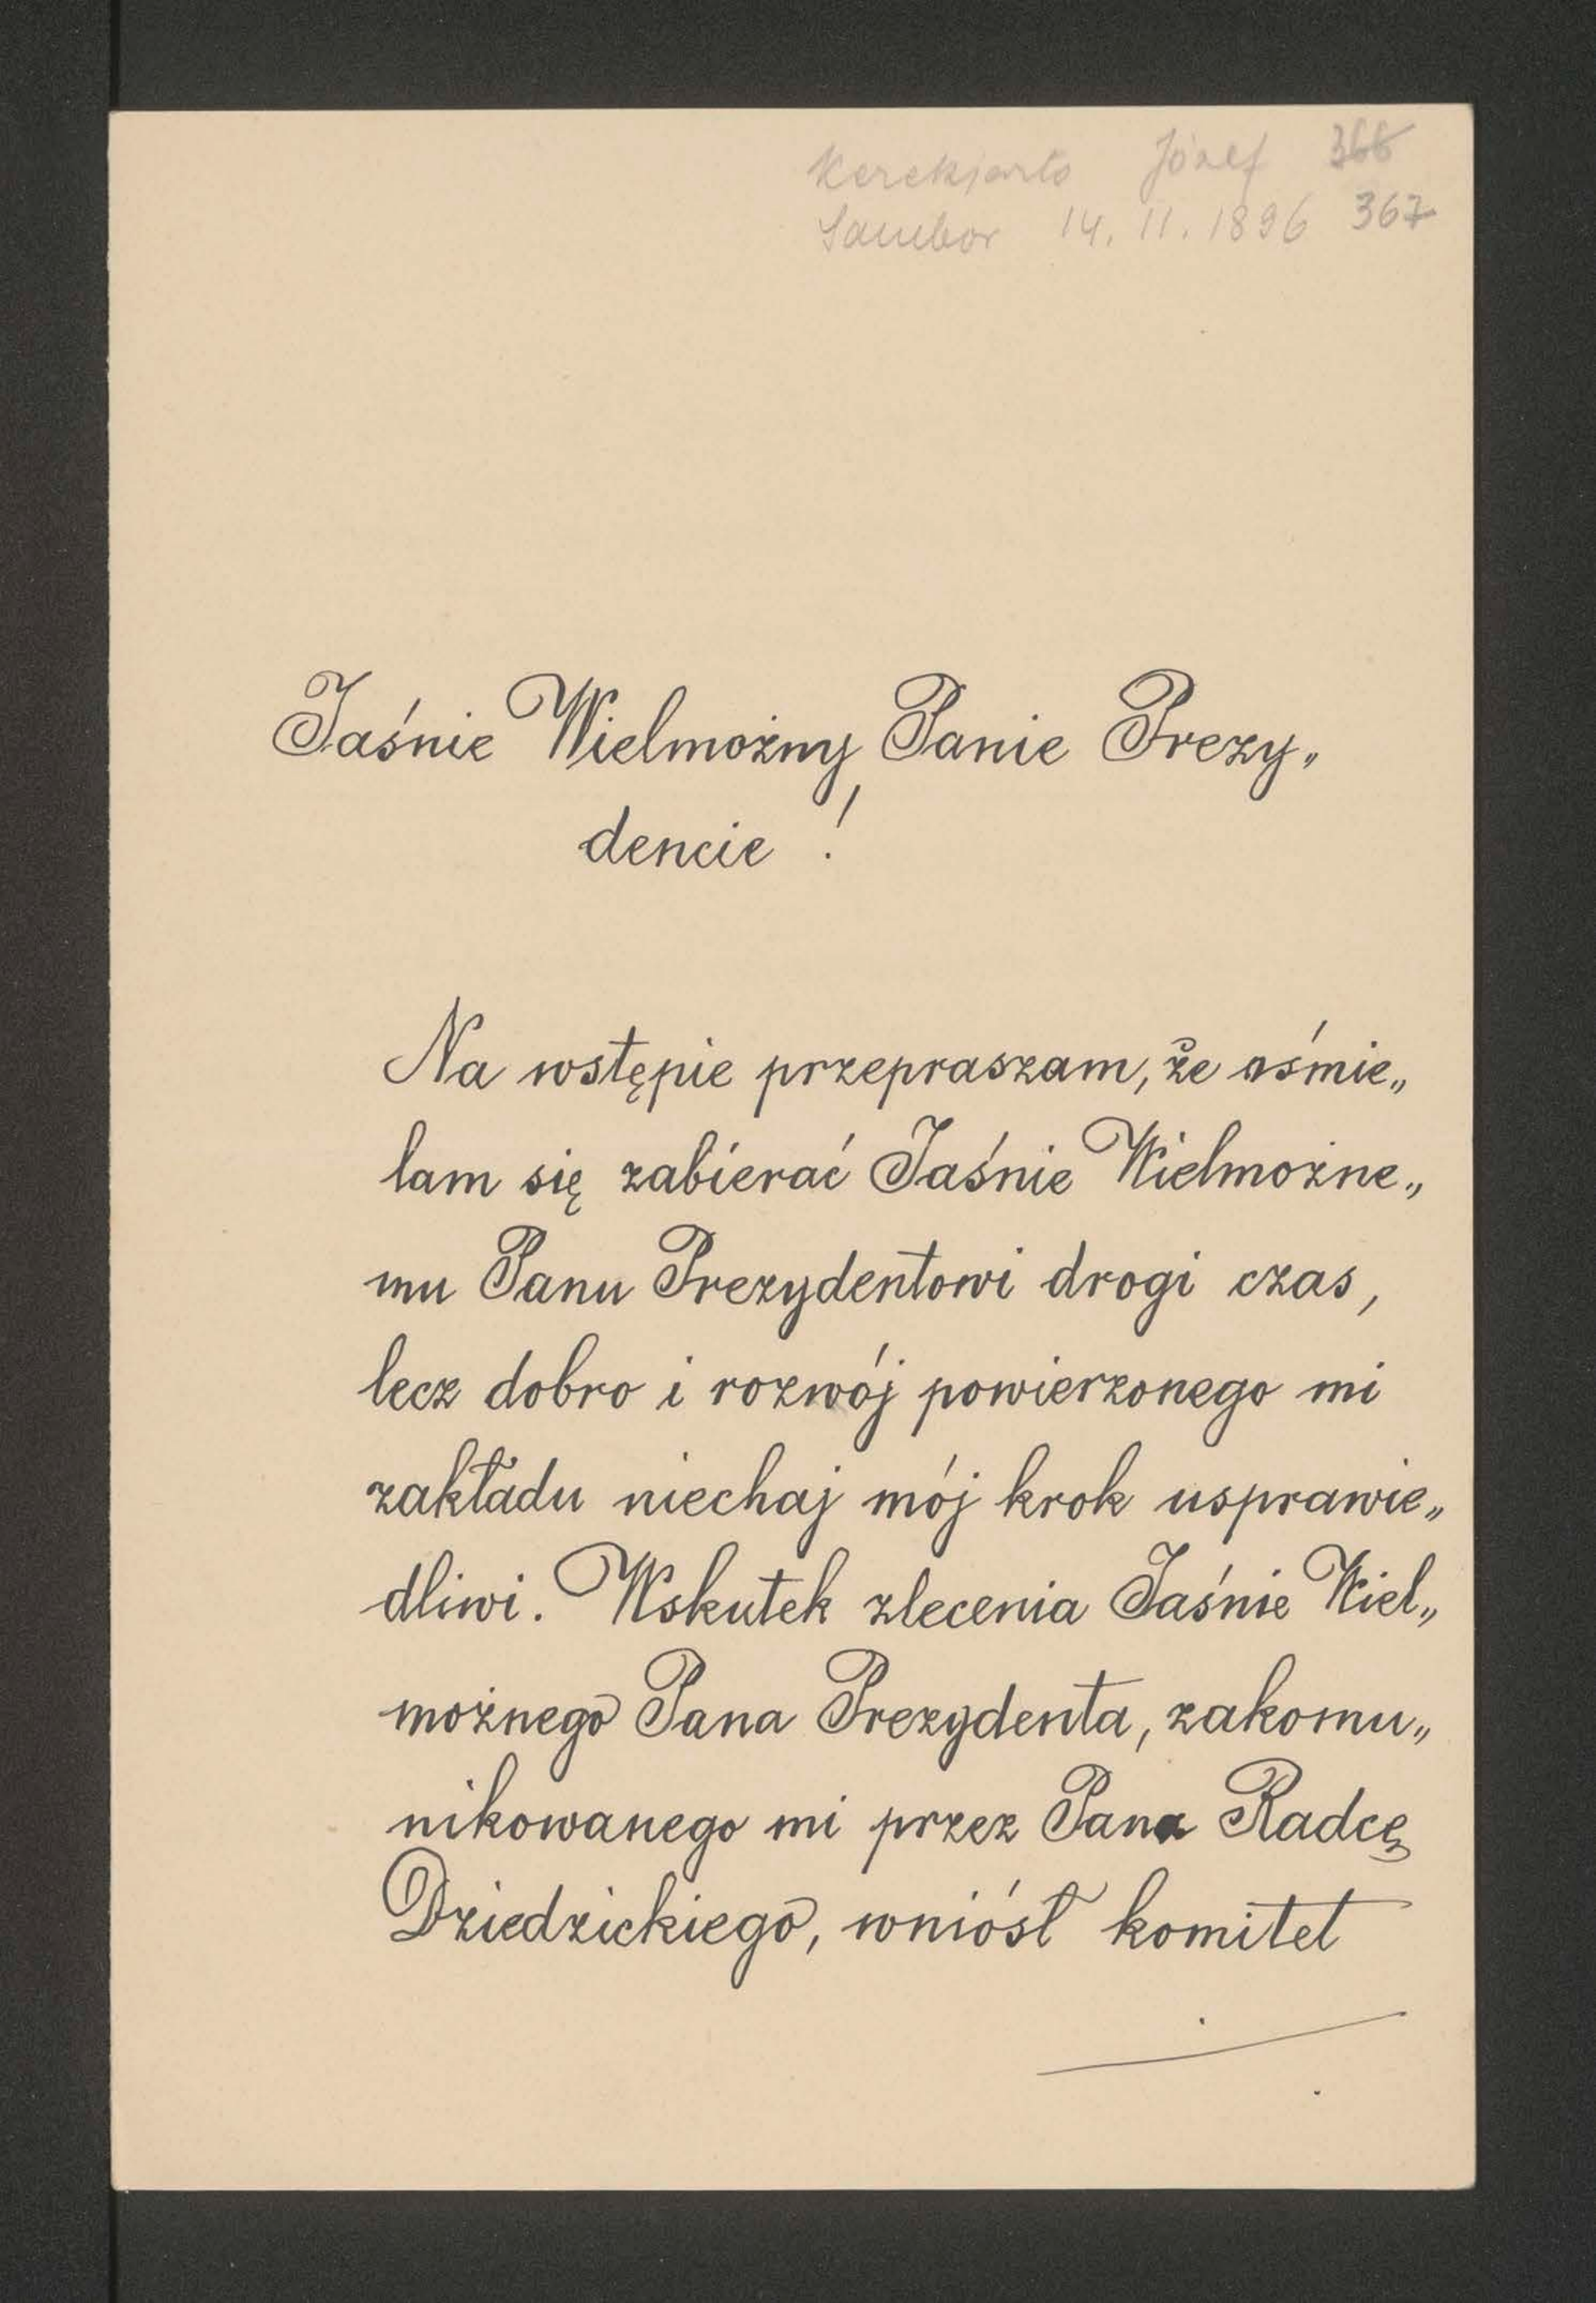 Kerekjarto Józef 366
Sambor 14. 11. 1896 367
Jaśnie Wielmożny Panie Prezy„
dencie !
Na wstępie przepraszam, że ośmie„
lam się zabierać Jaśnie Wielmożne„
mu Panu Prezydentowi drogi czas,
lecz dobro i rozwój powierzonego mi
zakładu niechaj mój krok usprawie„
dliwi. Wskutek zlecenia Jaśnie Wiel„
możnego Pana Prezydenta, zakomu„
nikowanego mi przez Pana Radcę
Dziedzickiego, wniósł komitet